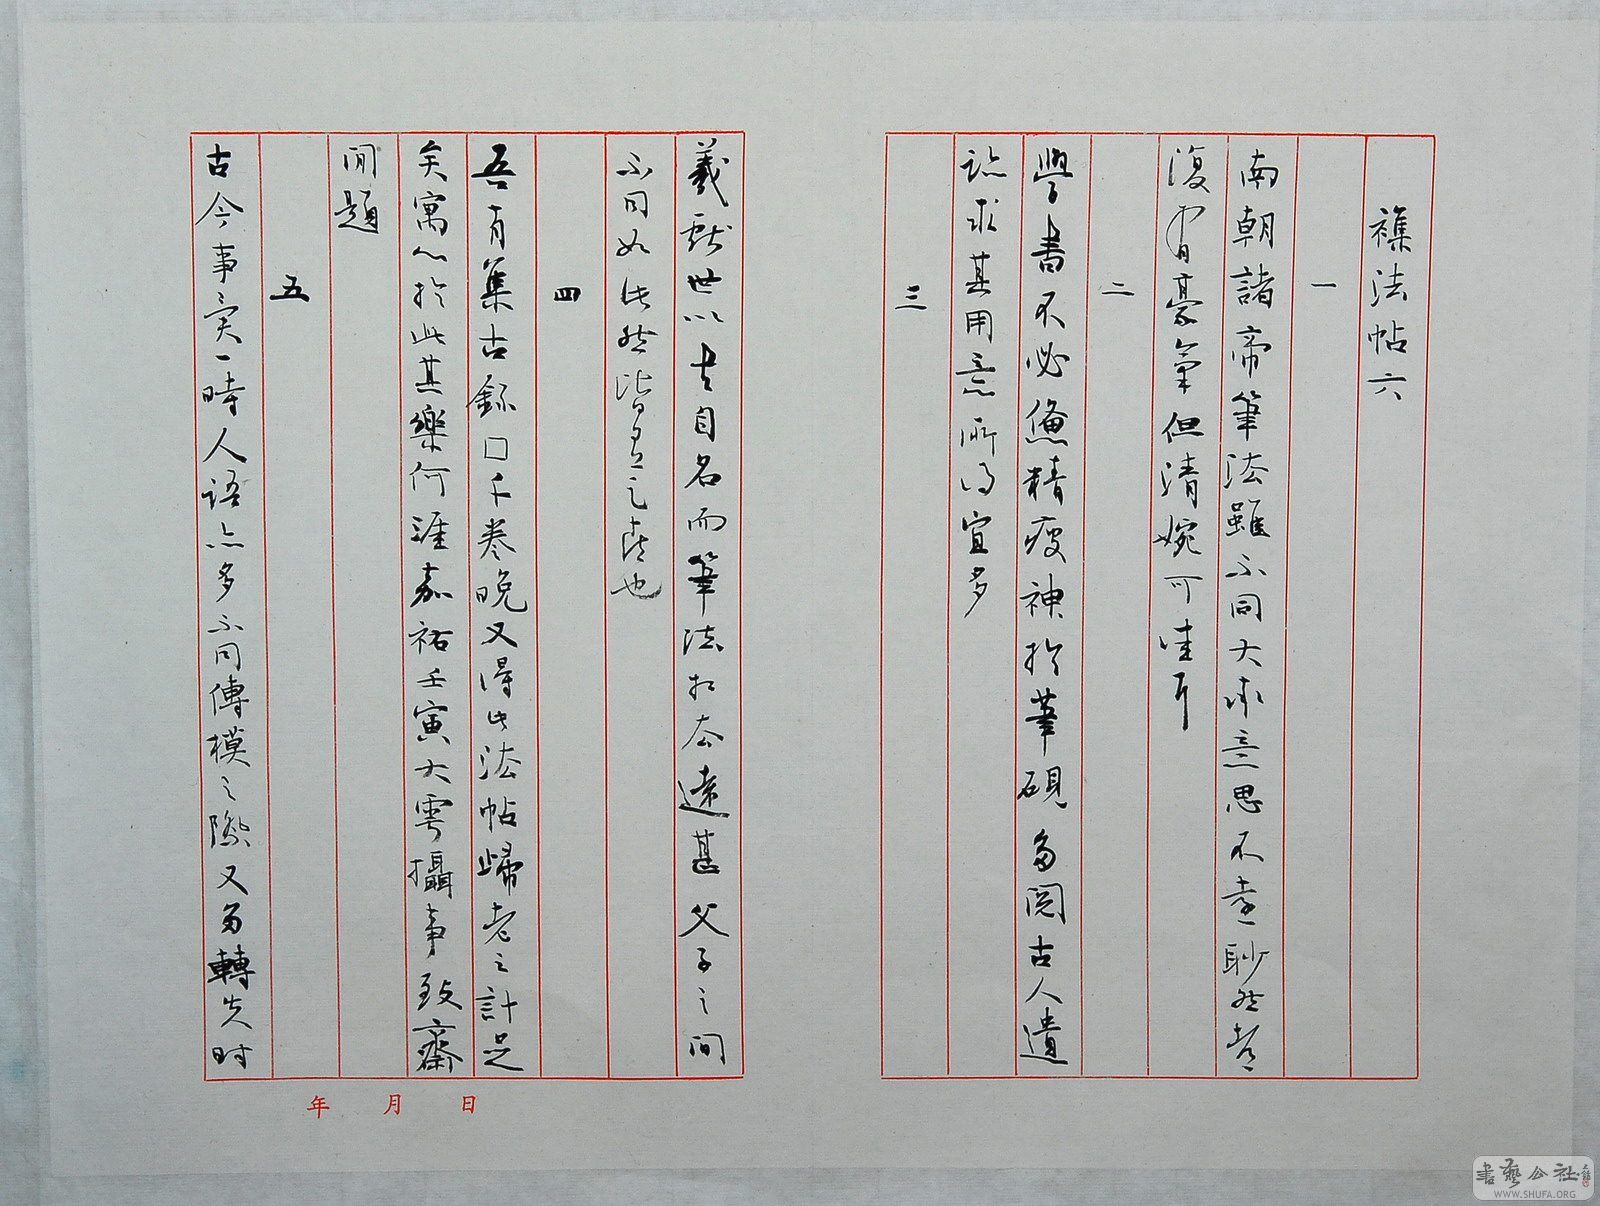 襍法帖六
一
南朝諸帝筆法雖不同大率意思不遠眇然都
復有豪氣但清婉可佳耳
二
學書不必憊精疲神於筆硯多閱古人遺
跡求其用意所得宜多
三
羲獻世以書自名而筆法相去遠甚父子之間
不同如此然皆有足喜也
四
吾有集古錄□千卷晚又得此法帖歸老之計足
矣寓心於此其樂何涯嘉祐壬寅大雩攝事致齋
閒題
五
古今事實一時人語亦多不同傳模之際又多轉失时
年 月 日
書藝公社
WWW.SHUFA.ORG